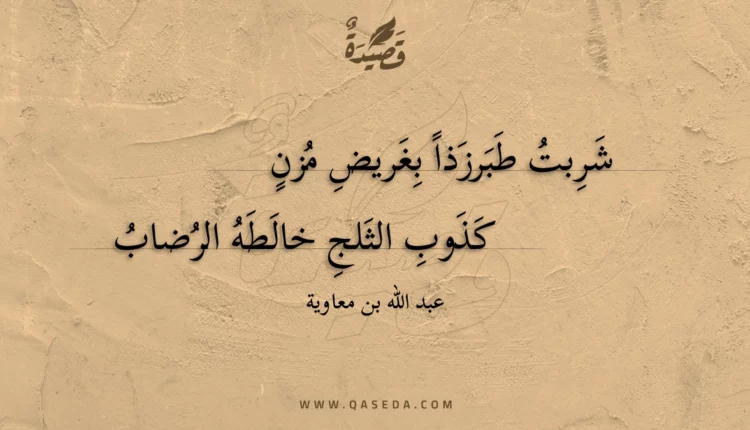 قَصِيدَةٌ
شَرِبتُ طَبَرزَذاً بِغَريضِ مُزنٍ
كَذَوبِ الثَلجِ خالَطَهُ الرُضابُ
عبد الله بن معاوية
WWW.QASEDA.COM